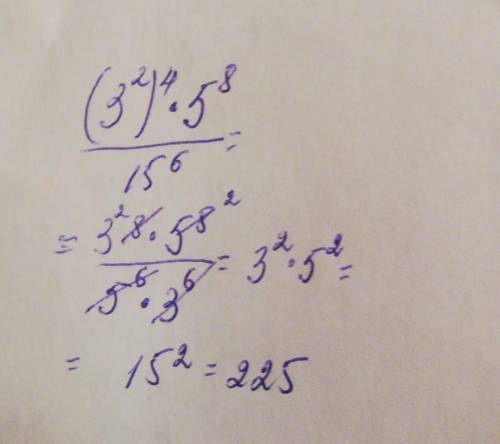 (3²)⁴ · 5⁸
15⁶ =
= 3² ⁸ · 5⁸ ²
5⁶ · 3⁶ = 3² · 5² =
= 15² = 225